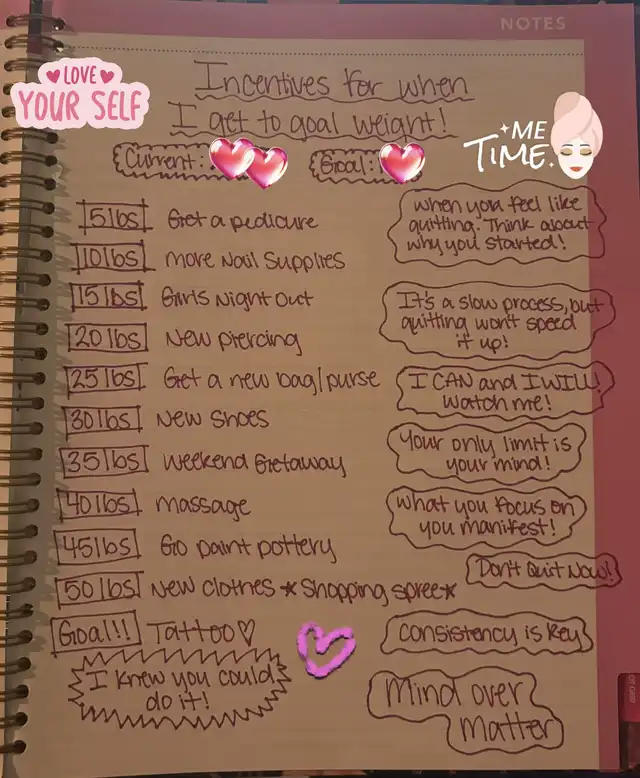 NOTES
LOVE
YOUR SELF
Incentives for when
I get to goal weight!
Current:
Goal:
ME
TIME.
5lbs Get a pedicure
10lbs more Nail Supplies
15lbs Girls Night Out
20lbs New piercing
25lbs Get a new bag/purse
30lbs New Shoes
35lbs Weekend Getaway
40lbs massage
45lbs Go paint pottery
50lbs New clothes *Shopping spree*
Goal!!! Tattoo♡
I knew you could
do it!
When you feel like
quitting. Think about
why you started!
It's a slow process, but
quitting won't speed
it up!
I CAN and I WILL!
Watch me!
Your only limit is
your mind!
What you focus on
you manifest!
Don't Quit Now!
Consistency is key
Mind over
Matter